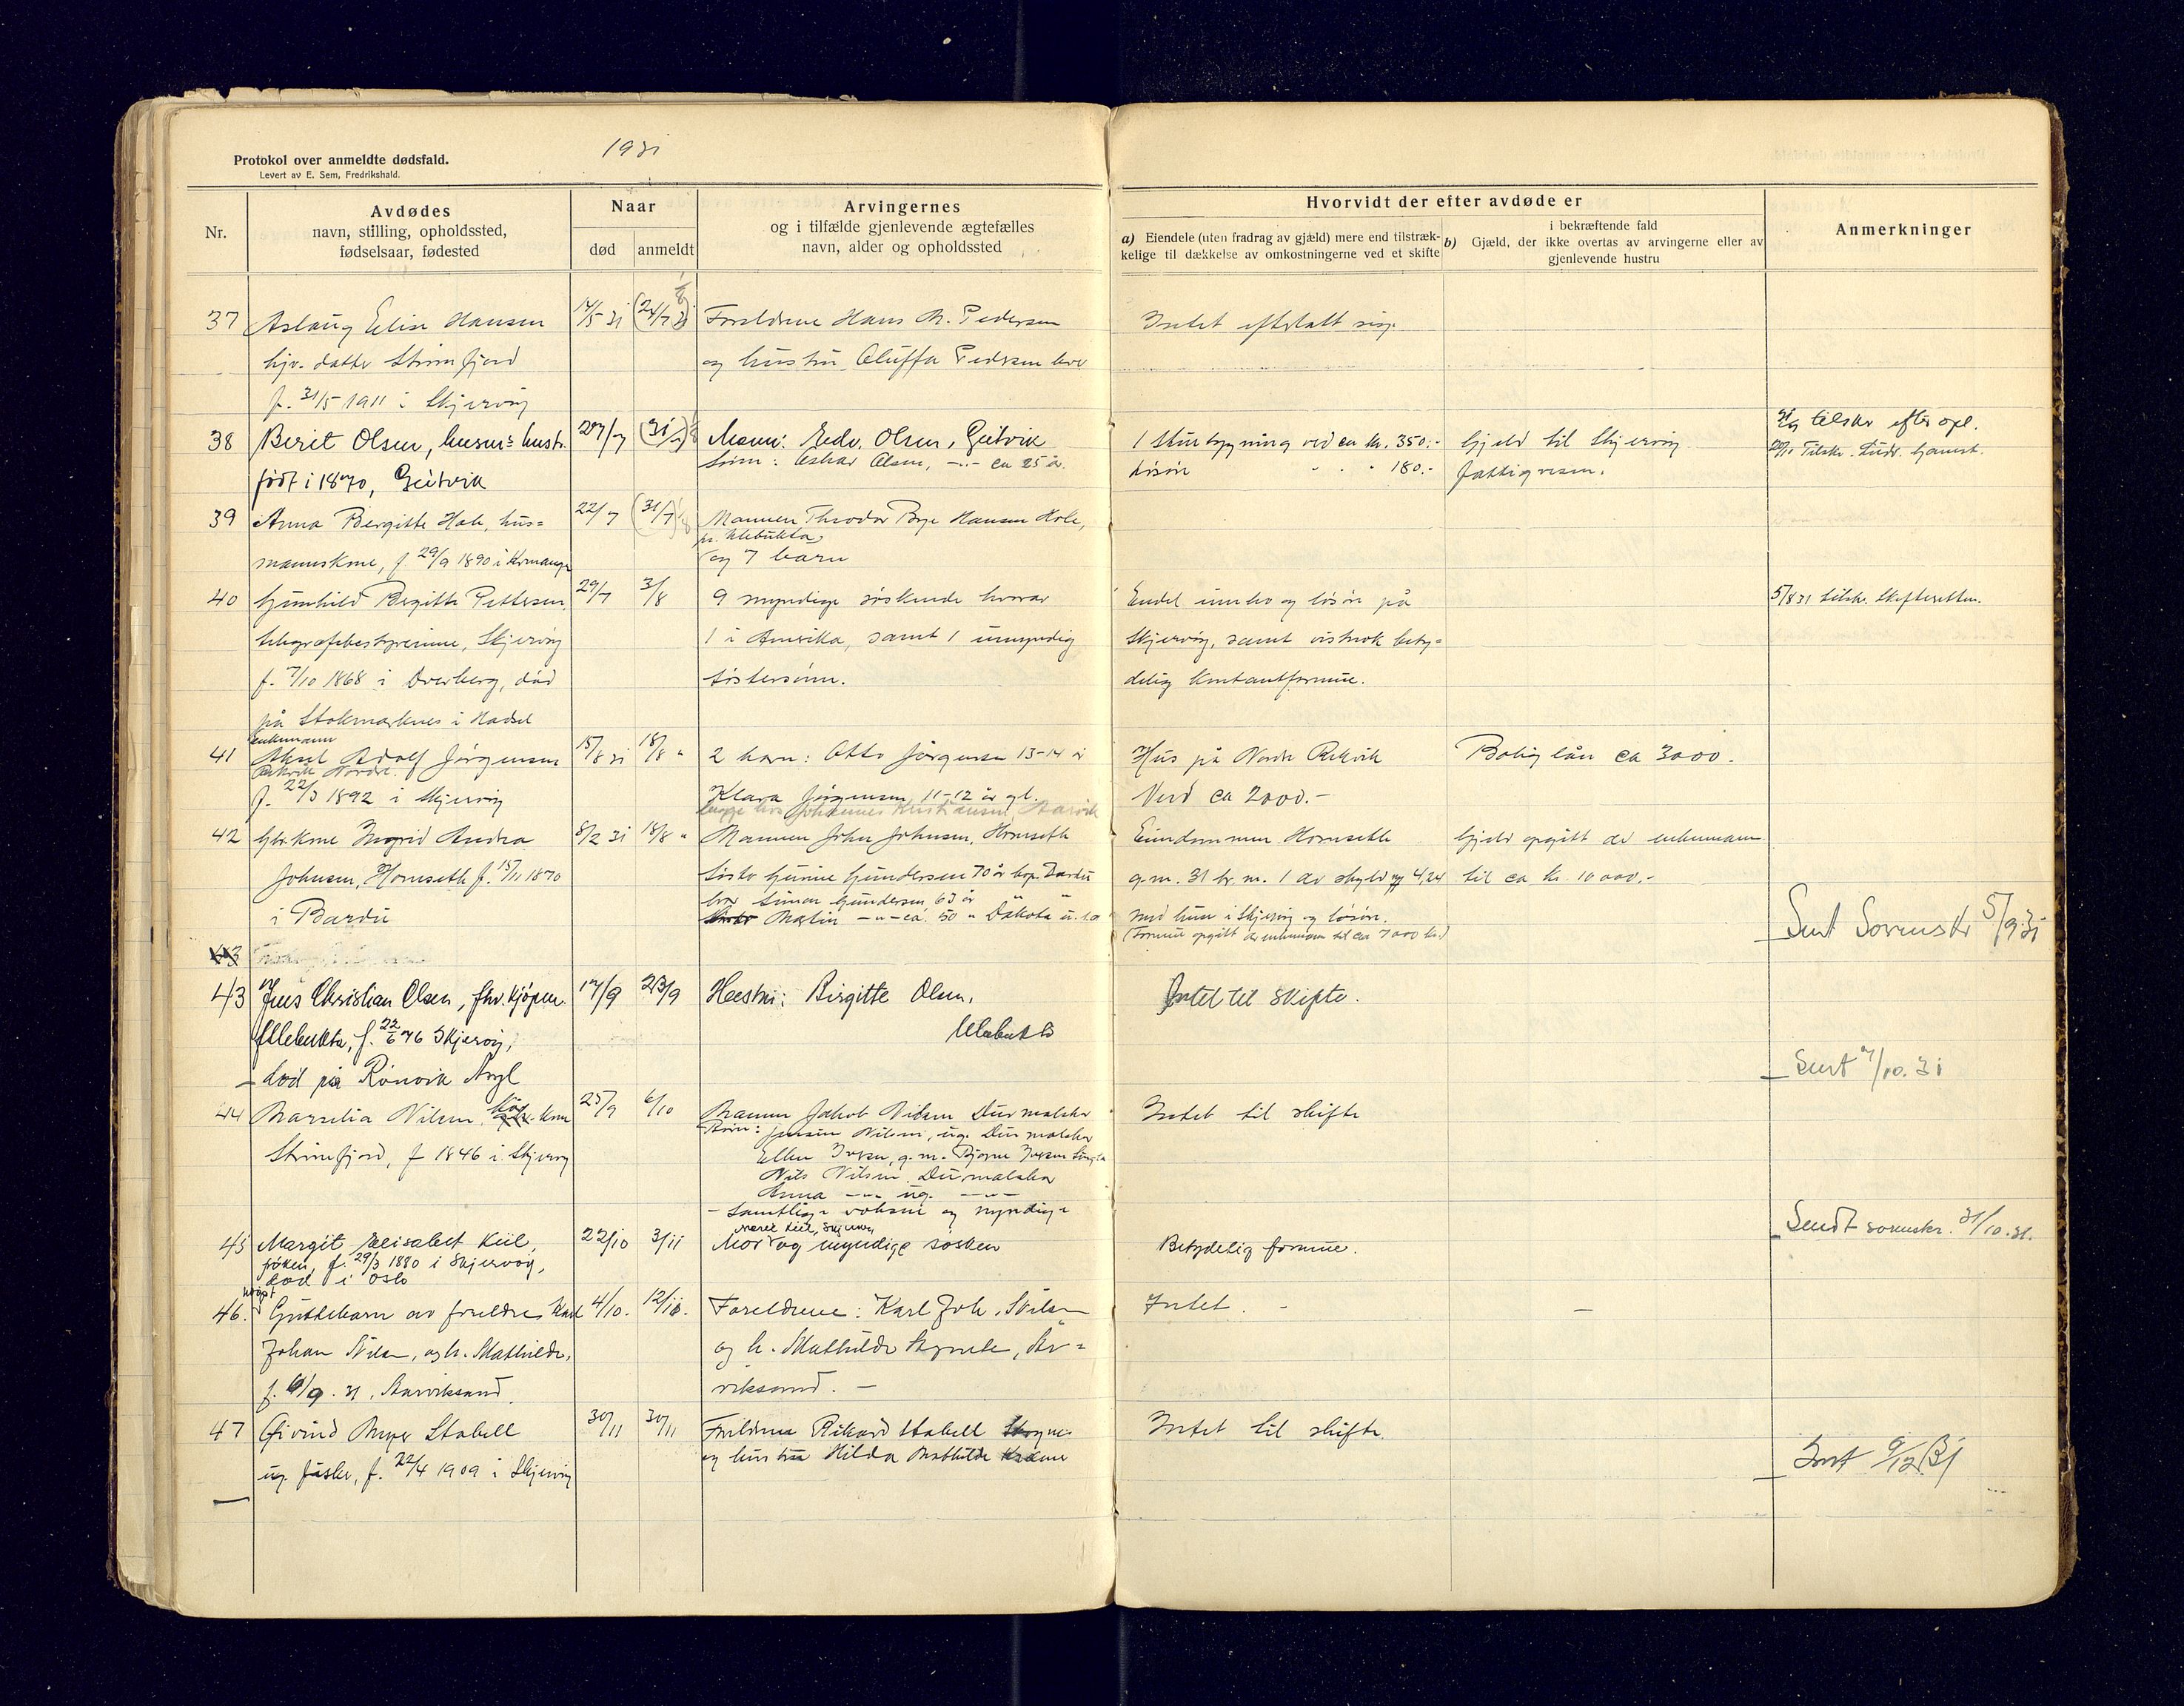 1931
Protokol over anmeldte dødsfald.
Levert av E. Sem, Fredrikshald.
Nr.
Avdødes
navn, stilling, opholdssted,
fødselsaar, fødested
Naar
død
anmeldt
Arvingernes
og i tilfælde gjenlevende ægtefælles
navn, alder og opholdssted
Hvorvidt der efter avdøde er
a) Eiendele (uten fradrag av gjæld) mere end tilstræk-
kelige til dækkelse av omkostningerne ved et skifte
i bekræftende fald
b) Gjæld, der ikke overtas av arvingerne eller av
gjenlevende hustru
Anmerkninger
37 Aslaug Elise Hansen
hjv. datter Straumfjord
f. 31/5 1911 i Skjervøy
Foreldrene Hans M. Pedersen
og hustru Oluffa Pedersen
Intet efterlatt sig.
38 Berit Olsen, husm= hustr.
født i 1870, Geitvik
27/7 (31/7)
Mann: Edv. Olsen, Geitvik
Sønn: Oskar Olsen, -"- ca 25 år.
1 stuebygning verd ca kr. 350.-
Løsøre " " " 180.-
Gjeld til Skjervøy
fattigvesen.
tilskr efter opl.
39 Anna Bergitte Hole, hus=
mannskone, f. 29/9 1890 i Kvænangen
22/7 (31/7)
Mannen Theodor Hansen Hole,
pr. Ulebukta
og 7 barn
40 Gunhild Bergitte Pettersen,
telegrafbestyrerinne, Skjervøy
f. 7/10 1868 i Dverberg, død
på Stokmarknes i Hadsel
29/7 3/8
9 myndige søskende hvorav
1 i Amerika, samt 1 umyndig
søstersønn.
Endel innbo og løsøre på
Skjervøy, samt vistnok bety=
delig kontantformue.
5/8 31 tilskr. Skifteretten.
41 enkemann
Aksel Adolf Jørgensen
Rekvik Nordre.
f. 22/3 1892 i Skjervøy
15/8 31 18/8 "
2 barn: Otto Jørgensen 13-14 år
Klara Jørgensen 11-12 år gl.
begge hos Johannes Kristiansen
Hus på Nordre Rekvik
Verd ca 2000.-
Bolig lån ca 3000.
42 Gbr.kone Ingrid Andrea
Johnsen, Hornseth f. 15/11 1870
i Bardu
8/2 31 18/8 "
Mannen John Johnsen, Hornseth
Søster Gunne Gundersen 70 år bop. Bardu
bror Simon Gundersen, 63 år "
Martin -"- ca. 50 " Dakota
Eiendommen Hornseth
g.nr. 31 br.nr. 1 av skyld 4,24
med hus i Skjervøy og løsøre.
(Formue opgitt av enkemann til ca 7000 kr.)
Gjeld opgitt av enkemann
til ca kr 10 000.-
Sent Sorenskr 5/9 31
43
43 Jens Christian Olsen, fhv. kjøpm.
Ulebukta, f. 22/6 76 Skjervøy,
død på Rønvik Asyl
17/9 23/9
Hustru: Birgitte Olsen,
Ulabukta
Intet til skifte.
Sent 7/10. 31
44 Marselia Nilsen, kone
Straumfjord, f 1846 i Skjervøy
25/9 6/10
Mannen Jakob Nilsen Durmalsha
Børn: Jensine Nilsen, ug. Durmalsha
Ellen Iversen, g.m. Bjarne Iversen
Nils Nilsen, Durmalsha
Anna -"- ug. -"-
- Samtlige voksne og myndige
Intet til skifte
Sendt sorenskr. 31/10.31.
45 Margit Elisabet Kiil,
frøken, f. 29/3 1880 i Skjervøy,
død i Oslo
22/10 3/11
Mor og myndige søsken
Betydelig formue.
46. Guttebarn av foreldre Karl
Johan Nilsen, og h. Mathilde,
f. 6/9. 31, Aarviksand.
4/10. 12/11.
Foreldrene: Karl Joh. Nilsen
og h. Mathilde Agnete, År=
viksand. -
Intet. - -
47 Øivind Meyer Stabell
ug. fisker, f. 22/4 1909 i Skjervøy
30/11 30/11
Foreldrene Rikard Stabell
og hustru Hilda Mathilde
Intet til skifte.
Sent 9/12 31